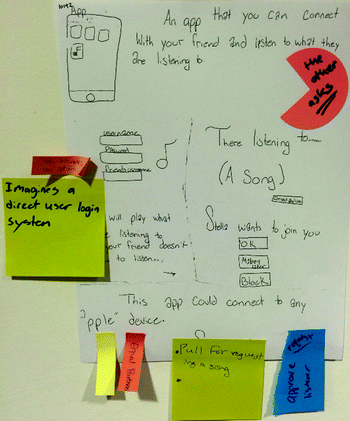 App
An app that you can connect
With your friend and listen to what they
are listening to
the other
asks
username
Password
There listening to.....
(A Song)
Imagines a
direct user login
system
will play what
listening to
your friend doesn't
to listen...
Stella wants to join you
OK
Maybe
later
Block
This app could connect to any
"apple" device.
Equal Partners
• Pull for request
ing a song
•
approve
listener